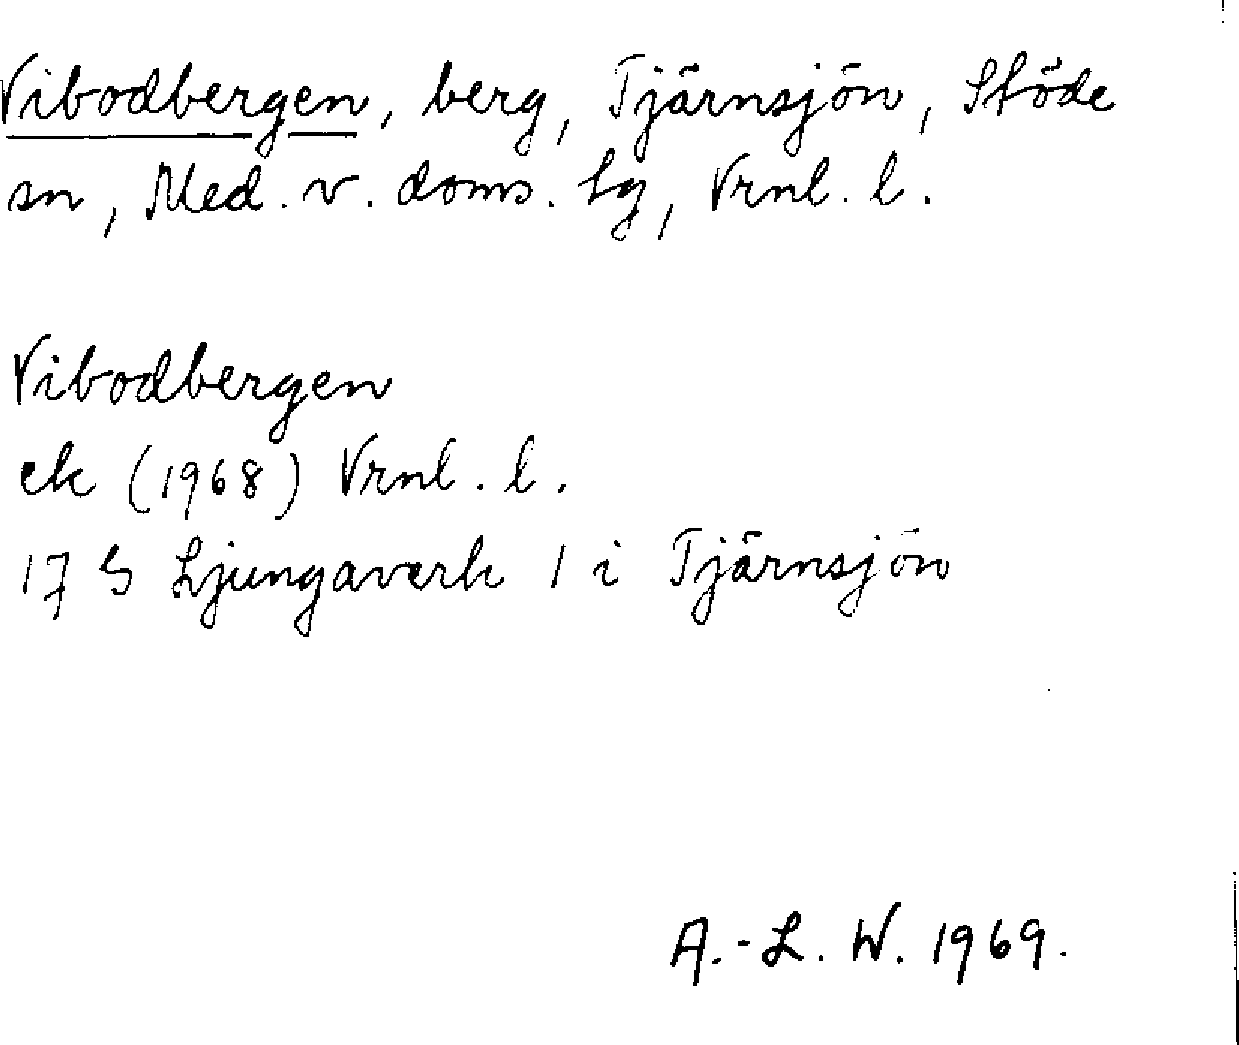 Vibodbergen, berg, Tjärnsjön, Stöde
sn, Med. v. doms. lg, Vrnl. l.
Vibodbergen
ek (1968) Vrnl. l.
17 G Ljungaverk 1 i Tjärnsjön
A.-L. W. 1969.